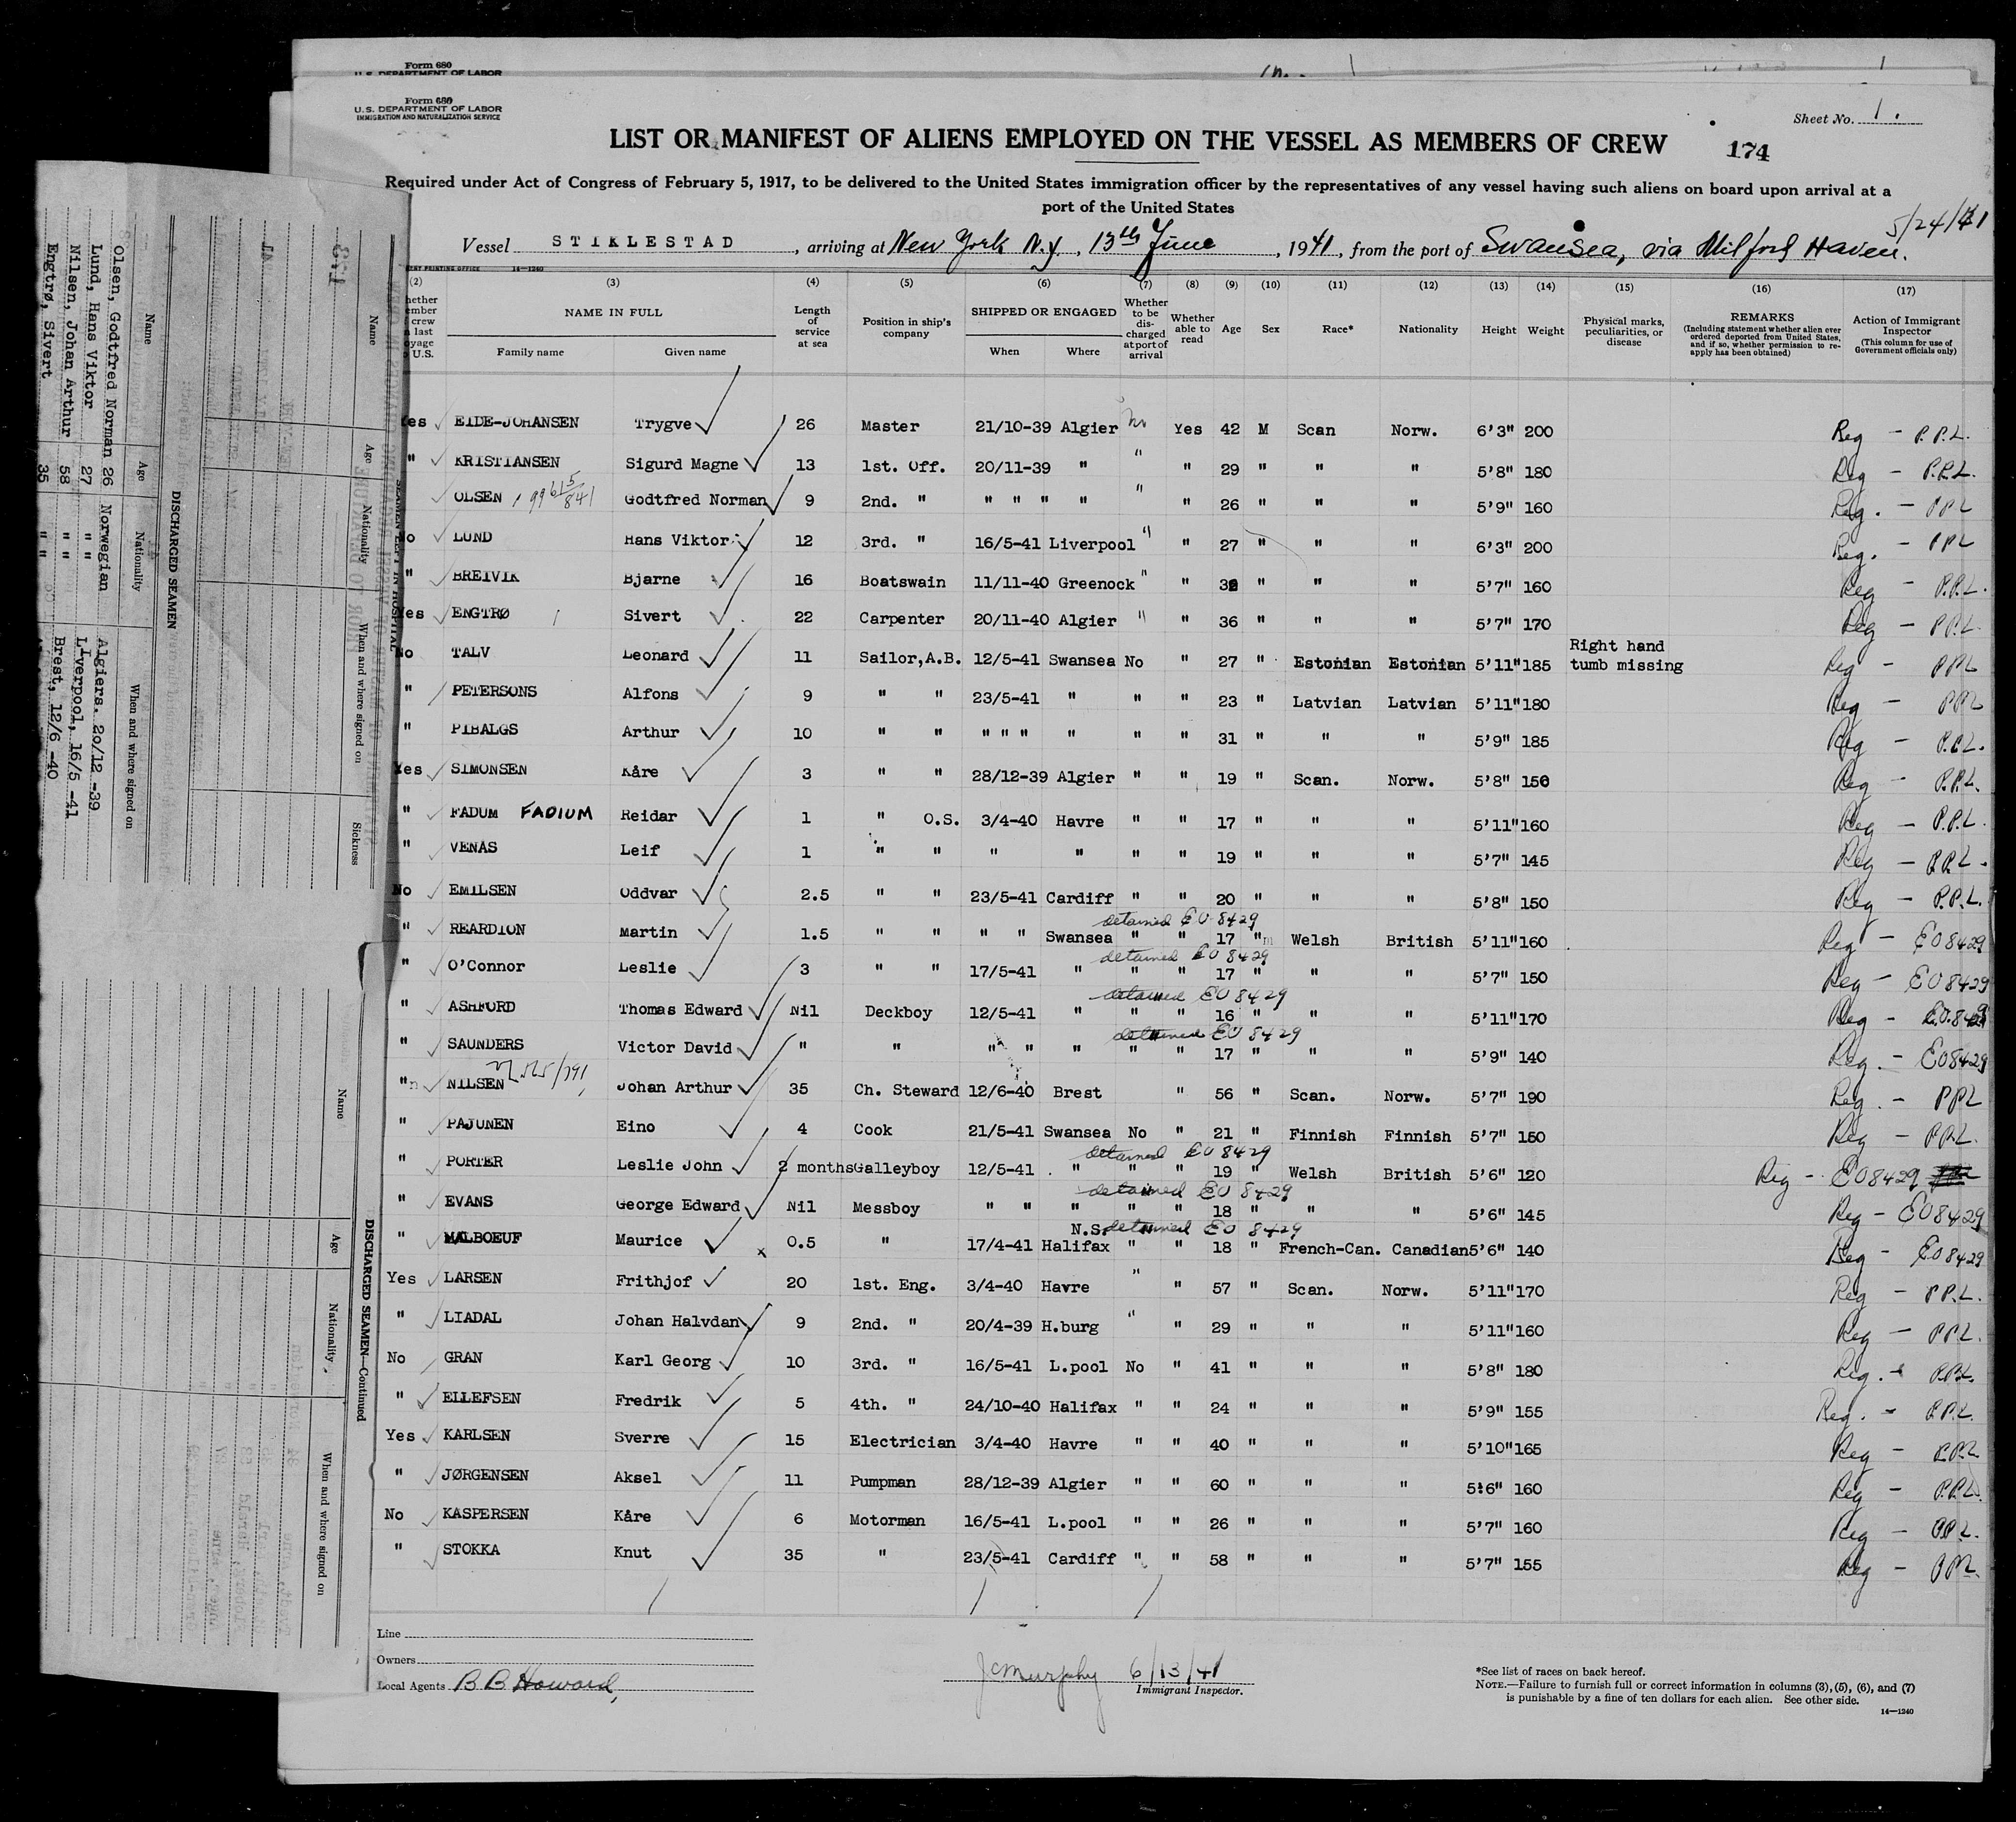 Form 680
U. S. DEPARTMENT OF LABOR
Form 680
U. S. DEPARTMENT OF LABOR
IMMIGRATION AND NATURALIZATION SERVICE
Sheet No. 1.
LIST OR MANIFEST OF ALIENS EMPLOYED ON THE VESSEL AS MEMBERS OF CREW 174
Required under Act of Congress of February 5, 1917, to be delivered to the United States immigration officer by the representatives of any vessel having such aliens on board upon arrival at a
port of the United States
5/24/41
Vessel STIKLESTAD, arriving at New York N.Y., 13th June, 1941, from the port of Swansea, via Milford Haven.
14—1240
(2) (3) (4) (5) (6) (7) (8) (9) (10) (11) (12) (13) (14) (15) (16) (17)
NAME IN FULL
Family name Given name
Length of service at sea
Position in ship's company
SHIPPED OR ENGAGED
When Where
Whether to be discharged at port of arrival
Whether able to read
Age Sex Race* Nationality Height Weight
Physical marks, peculiarities, or disease
REMARKS
(Including statement whether alien ever ordered deported from United States, and if so, whether permission to re-apply has been obtained)
Action of Immigrant Inspector
(This column for use of Government officials only)
Yes EIDE-JOHANSEN Trygve 26 Master 21/10-39 Algier No Yes 42 M Scan Norw. 6'3" 200 Reg - P.P.L.
" KRISTIANSEN Sigurd Magne 13 1st. Off. 20/11-39 " " " 29 " " " 5'8" 180 Reg - P.P.L.
OLSEN Godtfred Norman 9 2nd. " " " " " " " 26 " " " 5'9" 160 Reg. - PPL
No LUND Hans Viktor 12 3rd. " 16/5-41 Liverpool " " 27 " " " 6'3" 200 Reg. - PPL
" BREIVIK Bjarne 16 Boatswain 11/11-40 Greenock " " " " " 5'7" 160 Reg - P.P.L.
Yes ENGTRØ Sivert 22 Carpenter 20/11-40 Algier " " 36 " " " 5'7" 170 Reg - P.P.L.
No TALV Leonard 11 Sailor,A.B. 12/5-41 Swansea No " 27 " Estonian Estonian 5'11" 185 Right hand tumb missing Reg - PPL
" PETERSONS Alfons 9 " " 23/5-41 " " " 23 " Latvian Latvian 5'11" 180 Reg - PPL
" PIBALGS Arthur 10 " " " " " " " " 31 " " " 5'9" 185 Reg - P.P.L.
Yes SIMONSEN Kåre 3 " " 28/12-39 Algier " " 19 " Scan. Norw. 5'8" 150 Reg - P.P.L.
" FADUM FADIUM Reidar 1 " O.S. 3/4-40 Havre " " 17 " " " 5'11" 160 Reg - P.P.L.
" VENAS Leif 1 " " " " " " 19 " " " 5'7" 145 Reg - P.P.L.
No EMILSEN Oddvar 2.5 " " 23/5-41 Cardiff " " 20 " " " 5'8" 150 Reg - P.P.L.
detained EO 8429
" REARDION Martin 1.5 " " " " Swansea " " 17 " m Welsh British 5'11" 160 Reg - EO8429
detained EO 8429
" O'Connor Leslie 3 " " 17/5-41 " " " 17 " " " 5'7" 150 Reg - EO8429
detained EO 8429
" ASHFORD Thomas Edward Nil Deckboy 12/5-41 " " " 16 " " " 5'11" 170 Reg - E.O.8429
detained EO 8429
" SAUNDERS Victor David " " " " " " " 17 " " " 5'9" 140 Reg. - EO8429
" NILSEN Johan Arthur 35 Ch. Steward 12/6-40 Brest " 56 " Scan. Norw. 5'7" 190 Reg. - PPL
" PAJUNEN Eino 4 Cook 21/5-41 Swansea No " 21 " Finnish Finnish 5'7" 150 Reg - P.P.L.
detained EO 8429
" PORTER Leslie John 2 months Galleyboy 12/5-41 " " " 19 " Welsh British 5'6" 120 Reg - EO8429
detained EO 8429
" EVANS George Edward Nil Messboy " " " " " 18 " " " 5'6" 145 Reg - EO8429
N.S. detained EO 8429
" MALBOEUF Maurice x 0.5 " 17/4-41 Halifax " " 18 " French-Can. Canadian 5'6" 140 Reg - EO8429
Yes LARSEN Frithjof 20 1st. Eng. 3/4-40 Havre " " 57 " Scan. Norw. 5'11" 170 Reg - P.P.L.
" LIADAL Johan Halvdan 9 2nd. " 20/4-39 H.burg " " 29 " " " 5'11" 160 Reg - P.P.L.
No GRAN Karl Georg 10 3rd. " 16/5-41 L.pool No " 41 " " " 5'8" 180 Reg. - P.P.L.
" ELLEFSEN Fredrik 5 4th. " 24/10-40 Halifax " " 24 " " " 5'9" 155 Reg. - P.P.L.
Yes KARLSEN Sverre 15 Electrician 3/4-40 Havre " " 40 " " " 5'10" 165 Reg - P.P.L.
" JØRGENSEN Aksel 11 Pumpman 28/12-39 Algier " " 60 " " " 5'6" 160 Reg - P.P.L.
No KASPERSEN Kåre 6 Motorman 16/5-41 L.pool " " 26 " " " 5'7" 160 Reg - P.P.L.
" STOKKA Knut 35 " 23/5-41 Cardiff " " 58 " " " 5'7" 155 Reg - PPL
Line
Owners
Local Agents B B Howard,
JCMurphy 6/13/41
Immigrant Inspector.
*See list of races on back hereof.
NOTE.—Failure to furnish full or correct information in columns (3), (5), (6), and (7)
is punishable by a fine of ten dollars for each alien. See other side.
14—1240
DISCHARGED SEAMEN
Name Age Nationality When and where signed on
Olsen, Godtfred Norman 26 Norwegian Algiers. 20/12 -39
Lund, Hans Viktor 27 " " Liverpool, 16/5 -41
Nilsen, Johan Arthur 58 " " Brest, 12/6 -40
Engtrø, Sivert 35 " "
Name Age Nationality When and where signed on Sickness
DISCHARGED SEAMEN—Continued
Name Age Nationality When and where signed on